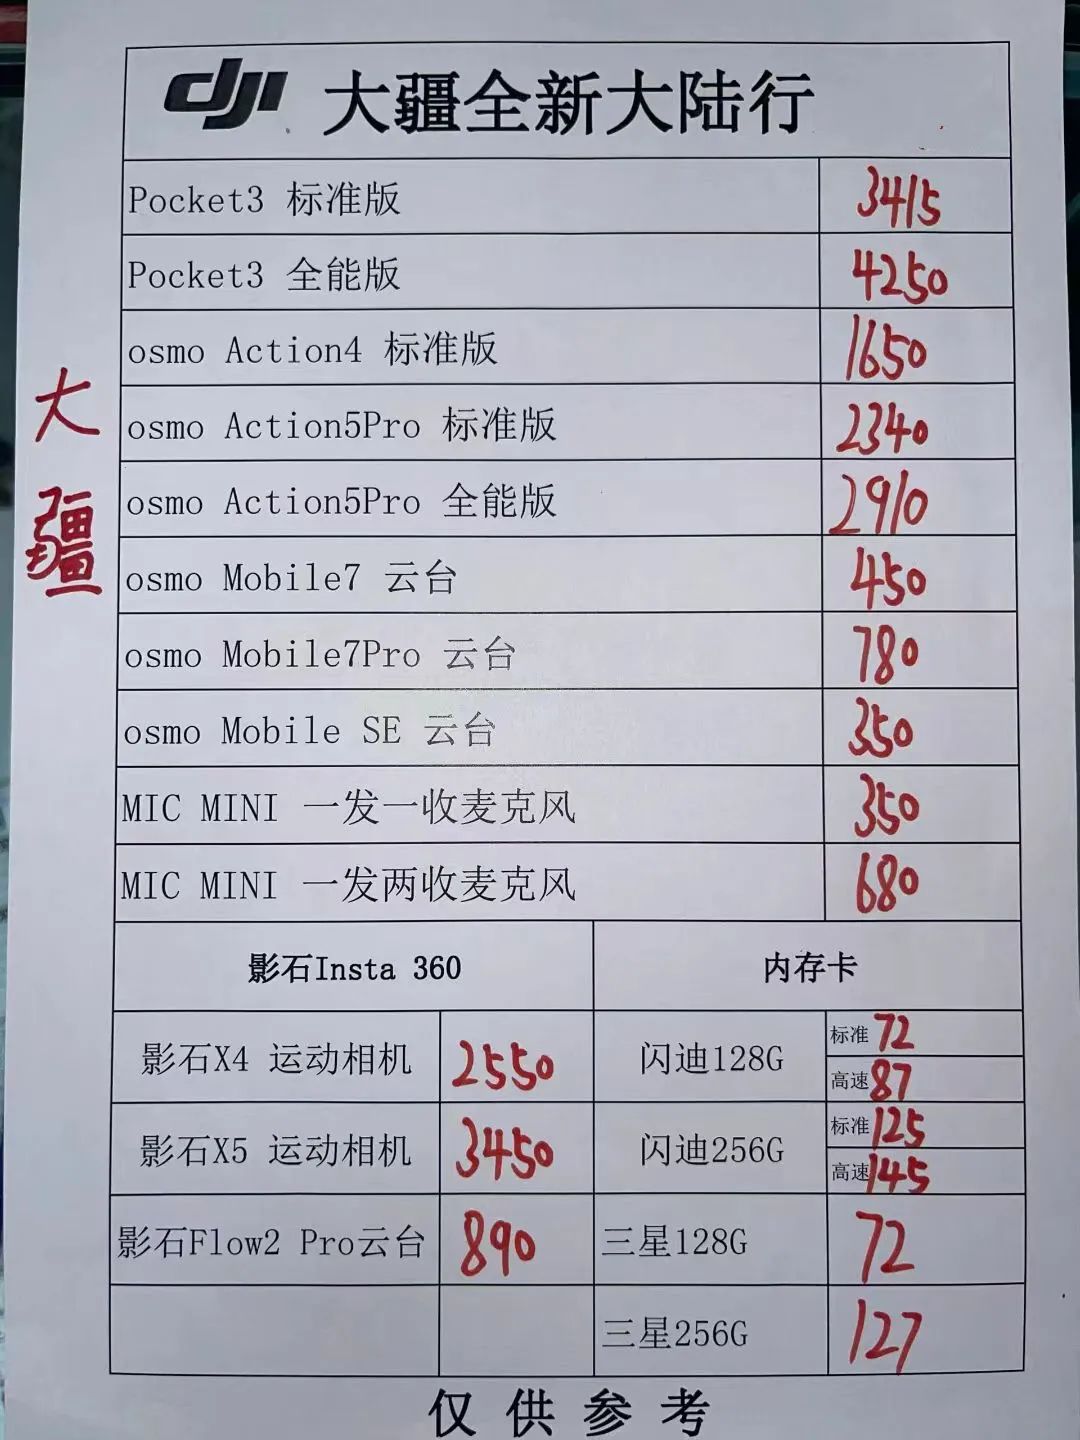 dji 大疆全新大陆行
Pocket3 标准版 3415
Pocket3 全能版 4250
osmo Action4 标准版 1650
大疆
osmo Action5Pro 标准版 2340
osmo Action5Pro 全能版 2910
osmo Mobile7 云台 450
osmo Mobile7Pro 云台 780
osmo Mobile SE 云台 350
MIC MINI 一发一收麦克风 350
MIC MINI 一发两收麦克风 680
影石Insta 360 内存卡
影石X4 运动相机 2550 闪迪128G 标准 72
高速 87
影石X5 运动相机 3450 闪迪256G 标准 125
高速 145
影石Flow2 Pro云台 890 三星128G 72
三星256G 127
仅供参考